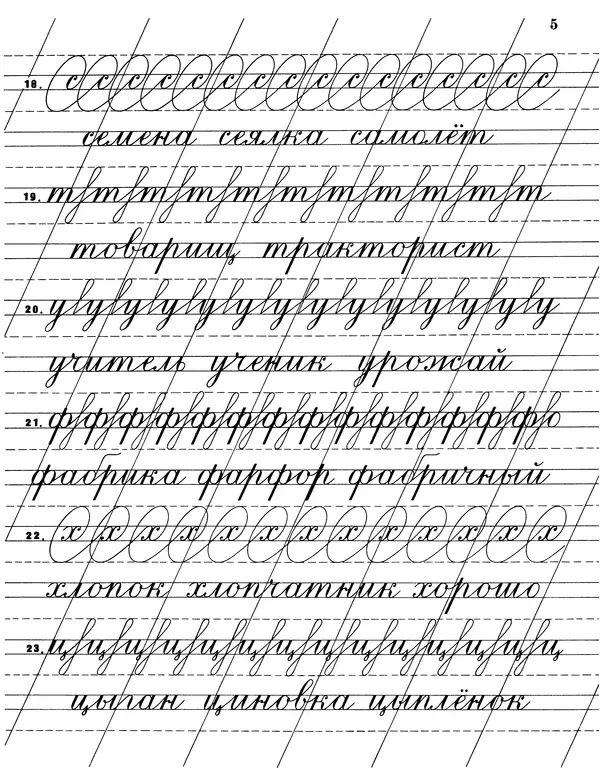 5
18. с с с с с с с с с с с с с с с с
семена сеялка самолёт
19. т т т т т т т т т т т
товарищ тракторист
20. у у у у у у у у у у у у у у
учитель ученик урожай
21. ф ф ф ф ф ф ф ф ф ф ф ф ф ф
фабрика фарфор фабричный
22. х х х х х х х х х х х х х
хлопок хлопчатник хорошо
23. ц ц ц ц ц ц ц ц ц ц ц ц ц ц
цыган циновка цыплёнок